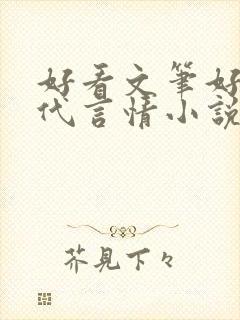 好看文筆好
代言情小說
芥見下々